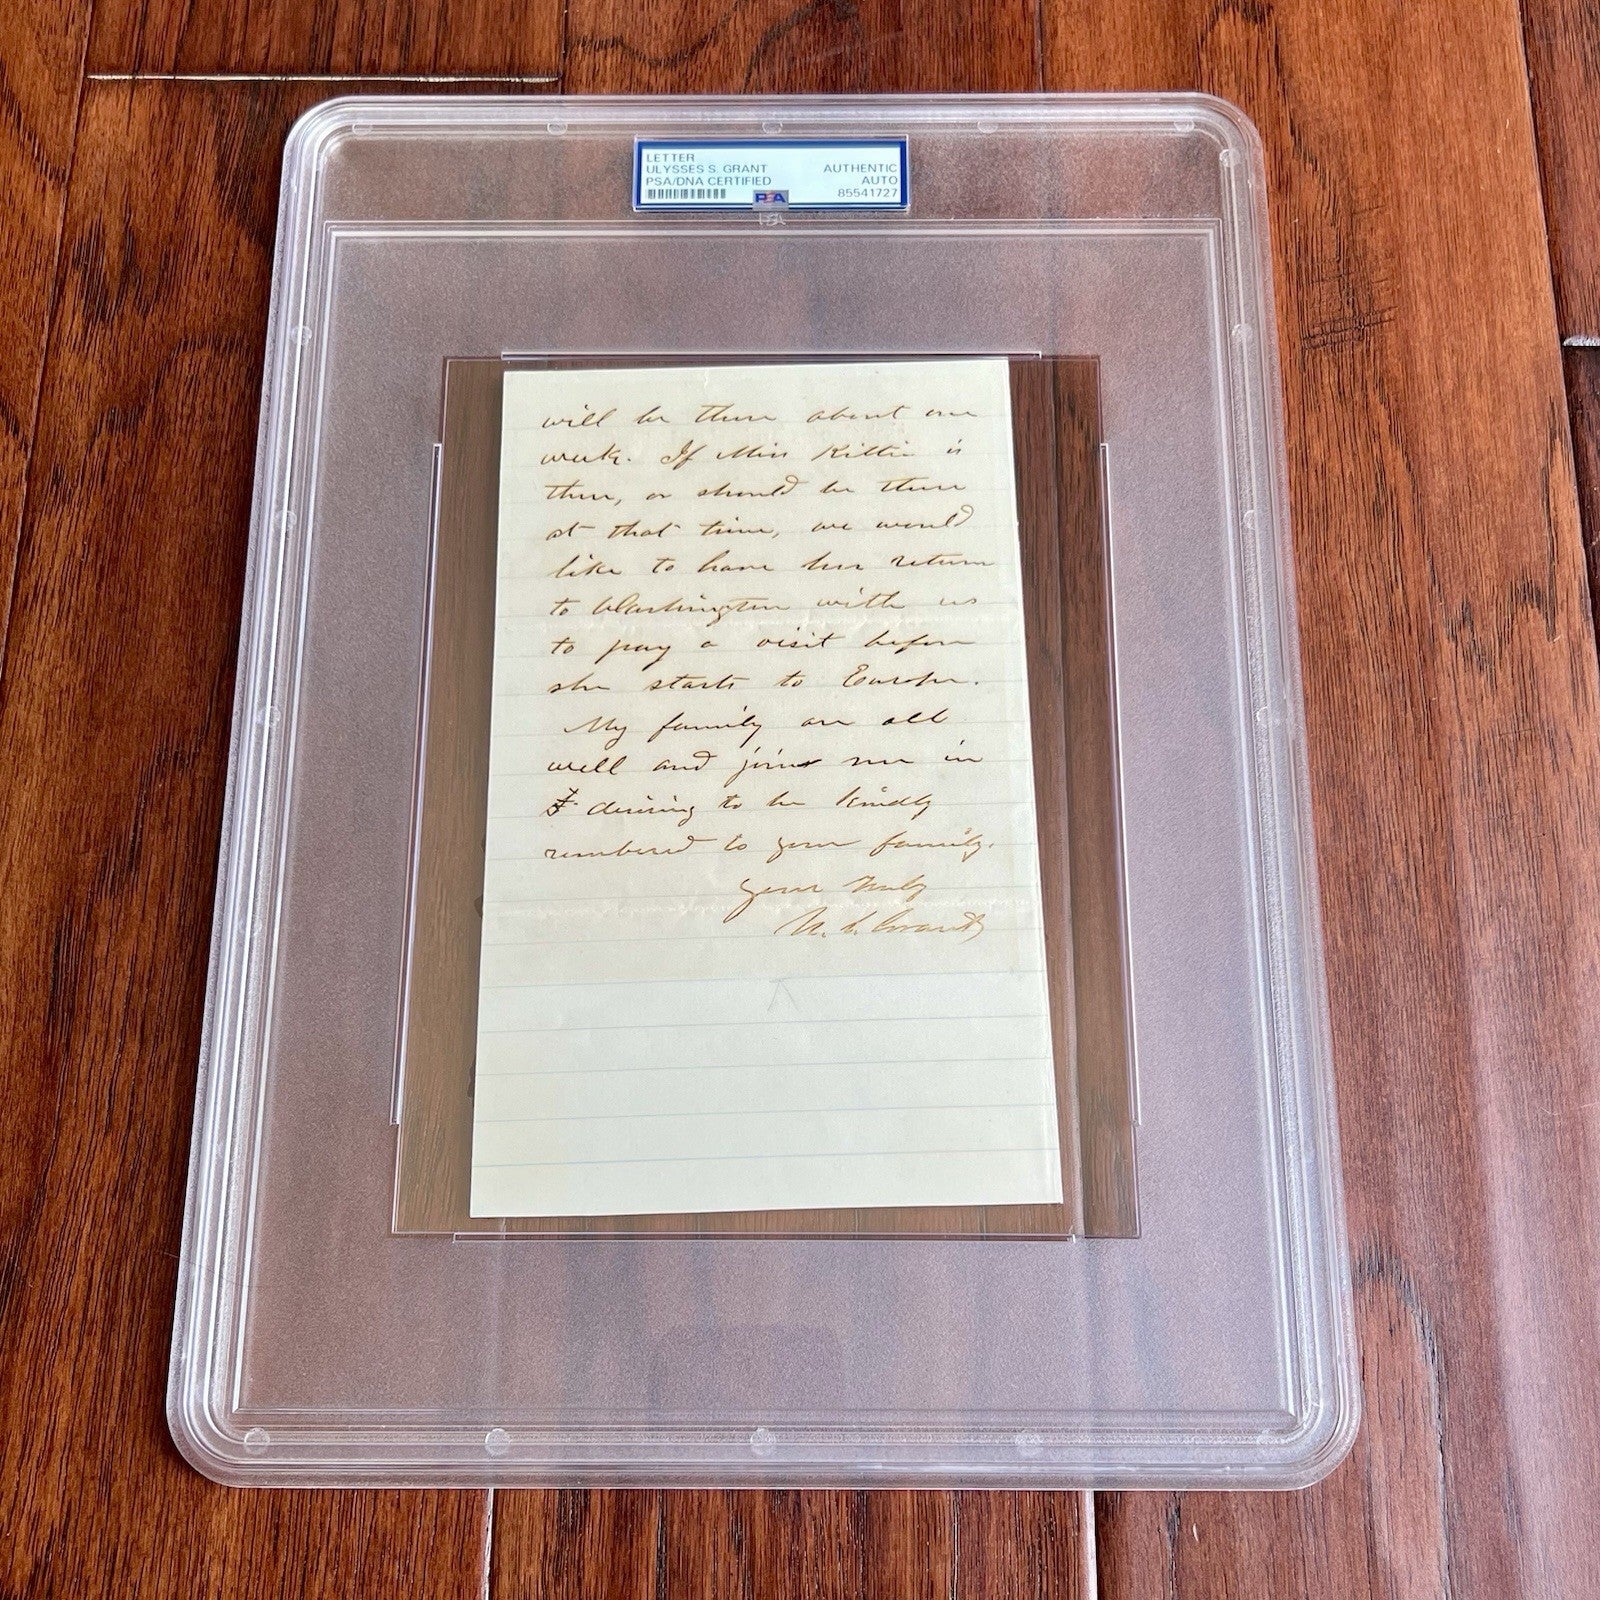 LETTER
ULYSSES S. GRANT
PSA/DNA CERTIFIED
AUTHENTIC
AUTO
85541727
PSA
will be there about one
week. If Miss Kittie is
there, or should be there
at that time, we would
like to have her return
to Washington with us
to pay a visit before
she starts to Europe.
My family are all
well and joins me in
desiring to be kindly
rembered to your family.
Yours Truly
U. S. Grant